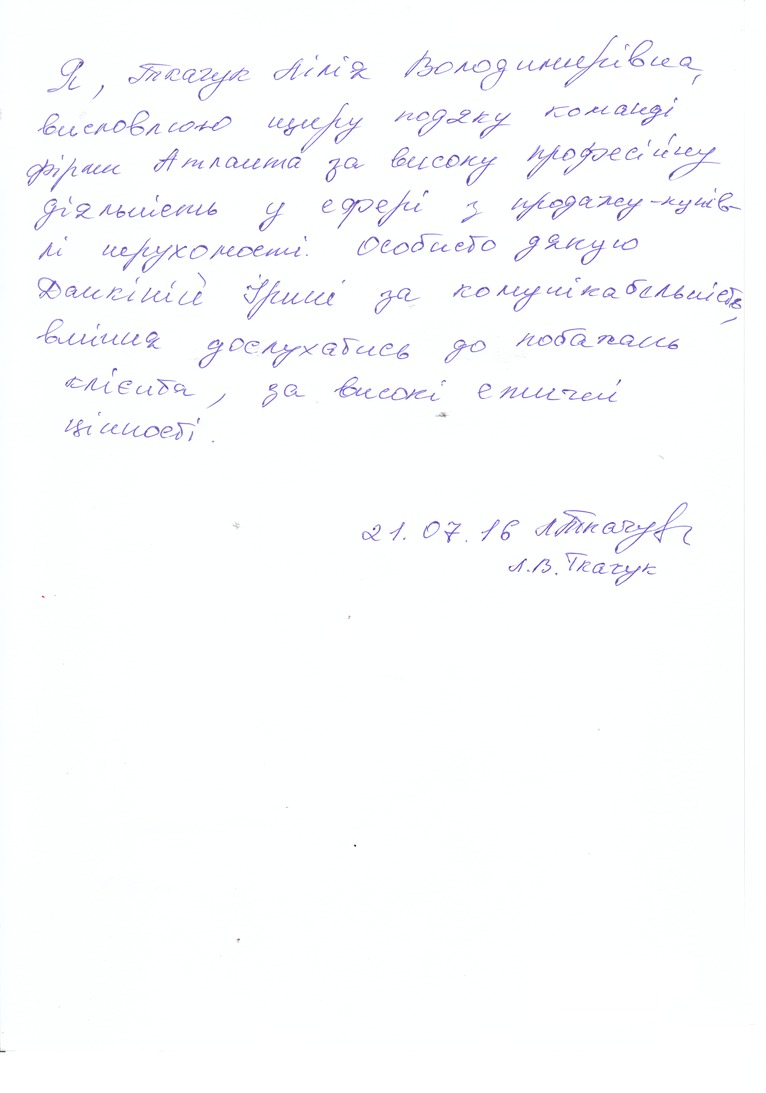 Я, Ткачук Лілія Володимирівна,
висловлюю щиру подяку команді
фірми Атланта за високу професійну
діяльність у сфері з продажу-купів-
лі нерухомості. Особисто дякую
Данкіній Ірині за комунікабельність,
вміння дослухатись до побажань
клієнта, за високі етичні
цінності.
21.07.16 ЛТкачук
Л.В. Ткачук